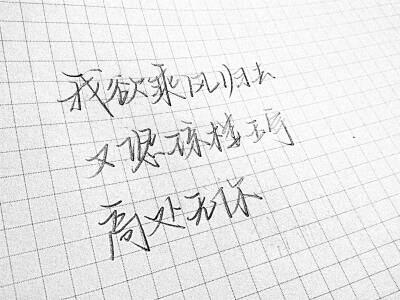 我欲乘风归去
又恐琼楼玉宇
高处无你